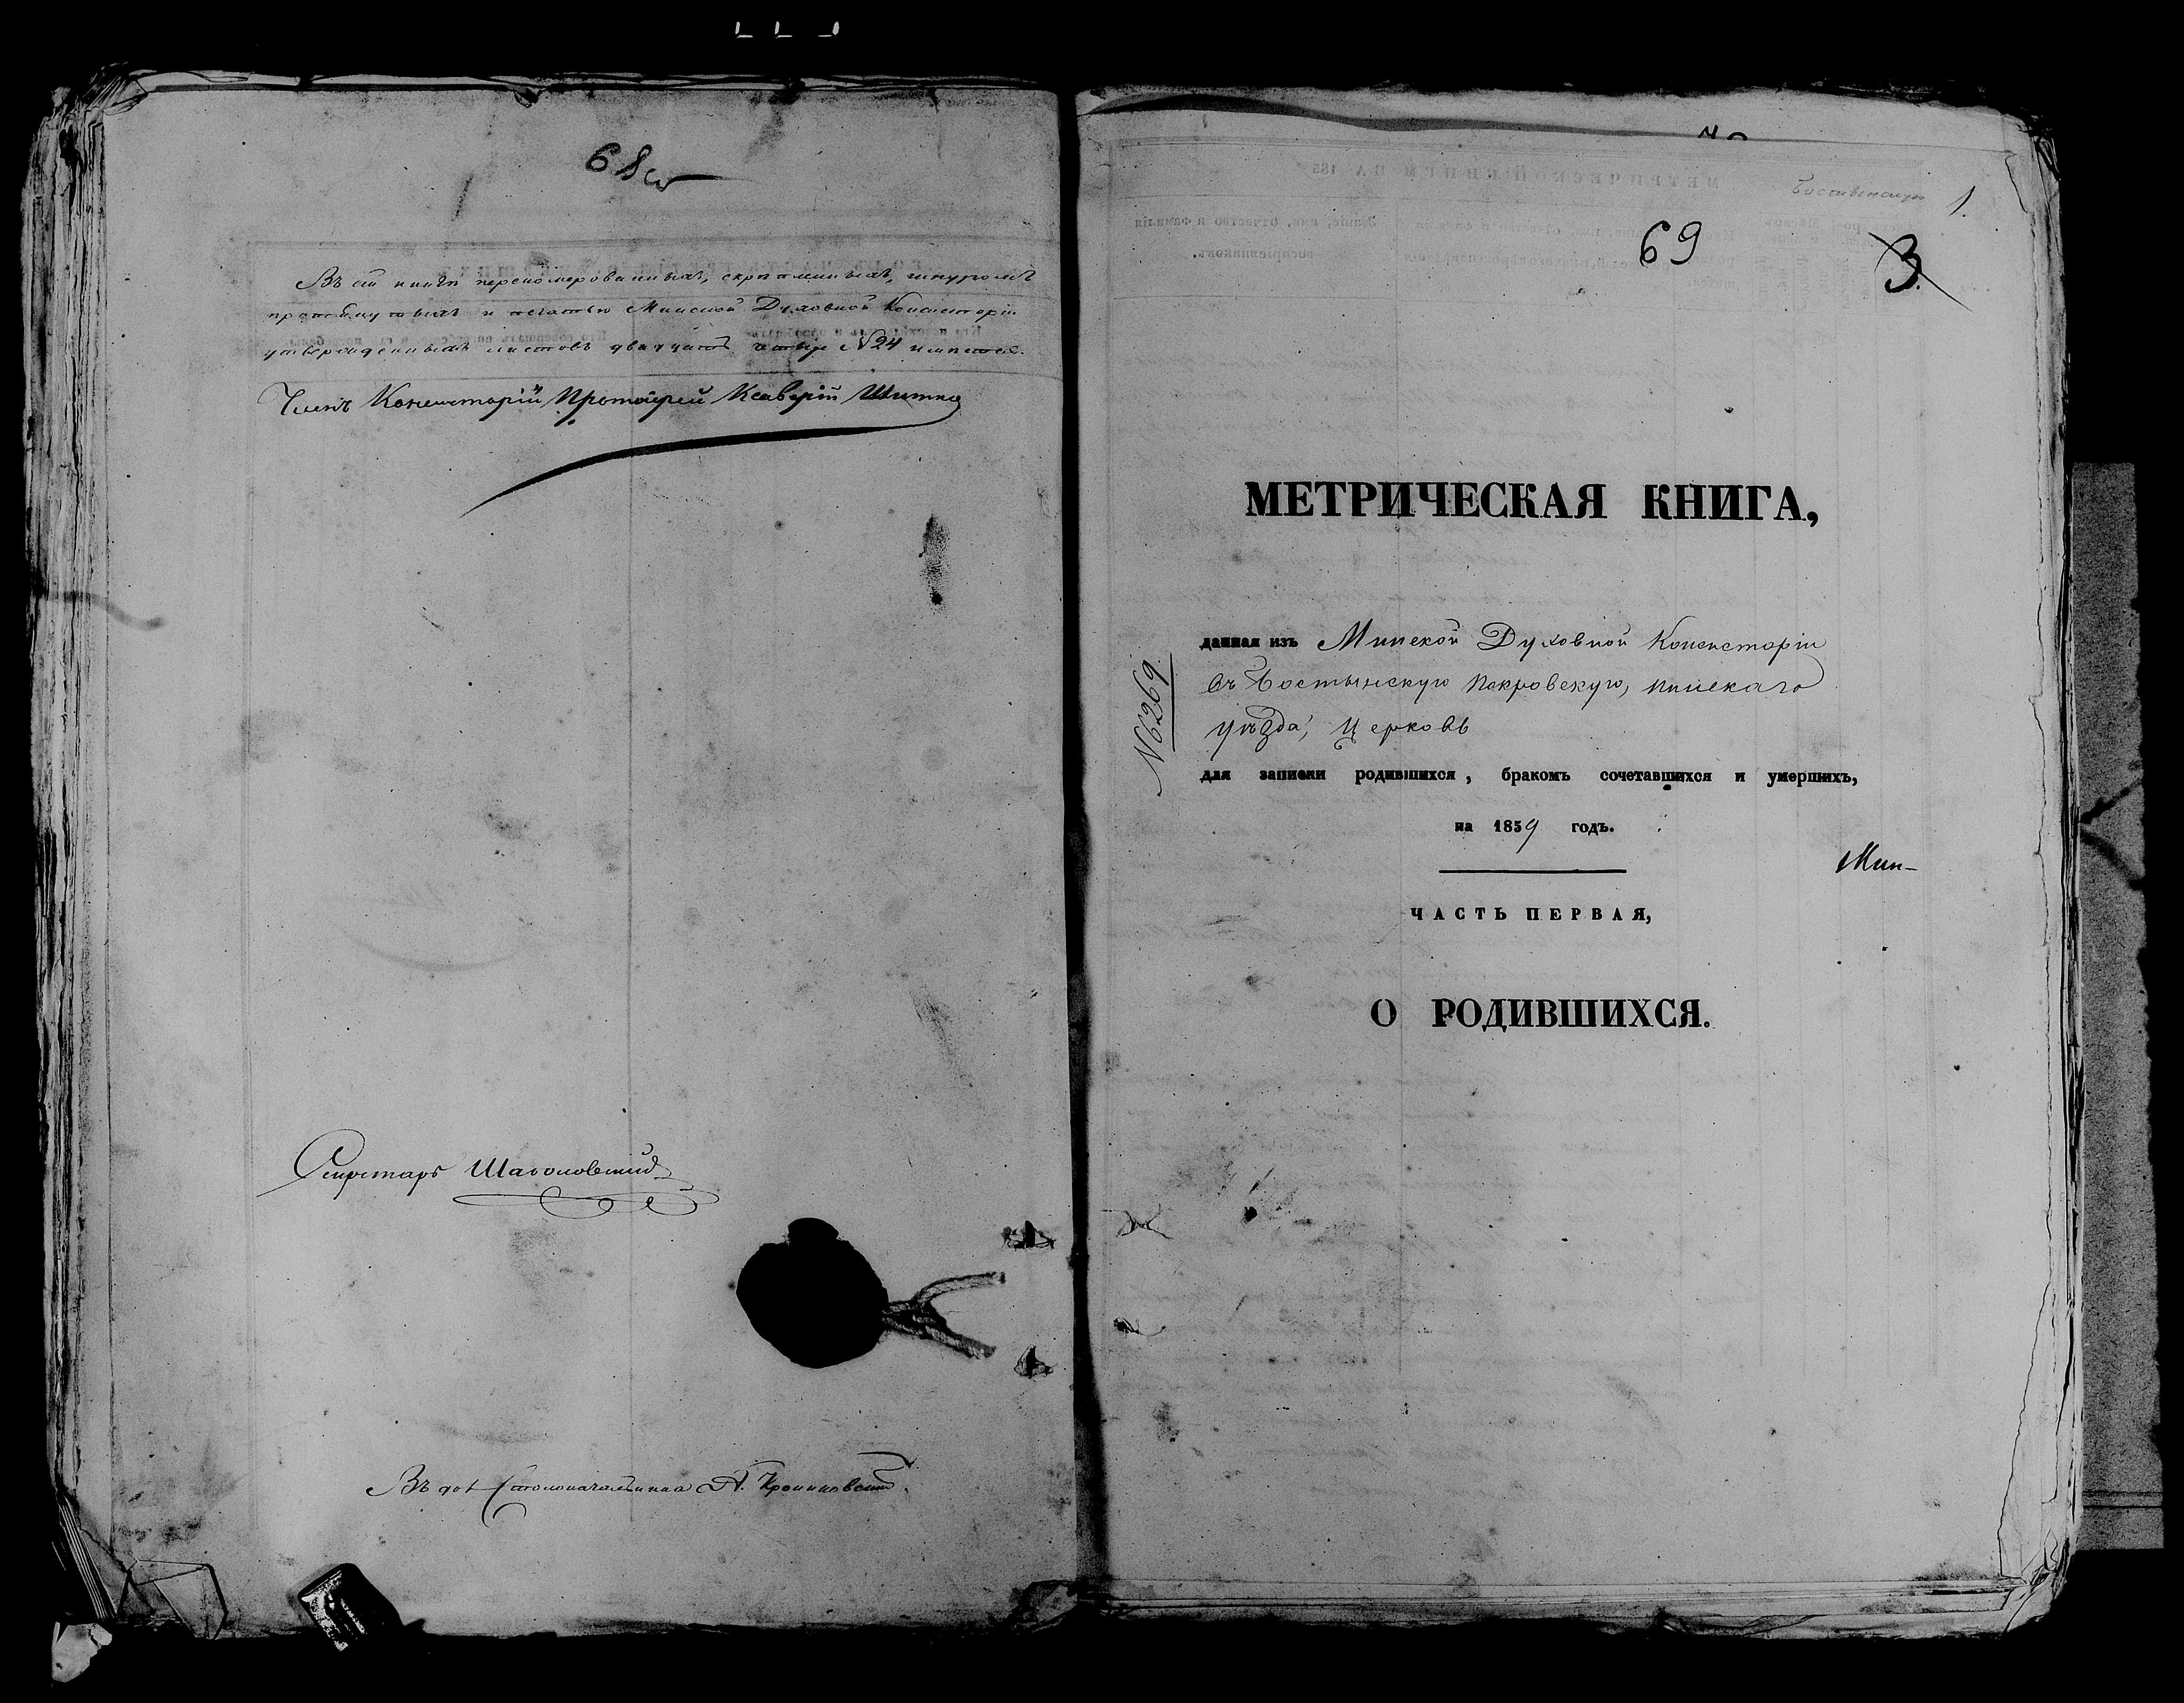 68 об
Въ сей книгѣ перенумерованныхъ, скрѣпленныхъ, шнуромъ
прошнутыхъ и печатью Минской Духовной Консисторіи
утвержденныхъ листовъ двадцать четыре № 24 имѣется.
Членъ Консисторіи Протоіерей Ксаверій
Секретарь
Въ дол. Столоначальника А.
1.
69
3.
МЕТРИЧЕСКАЯ КНИГА,
данная изъ Минской Духовной Консисторіи
въ Бостынскую Покровскую, Пинскаго
уѣзда, Церковь
№6269.
для записки родившихся, бракомъ сочетавшихся и умершихъ,
на 1859 годъ.
Мин-
ЧАСТЬ ПЕРВАЯ,
О РОДИВШИХСЯ.